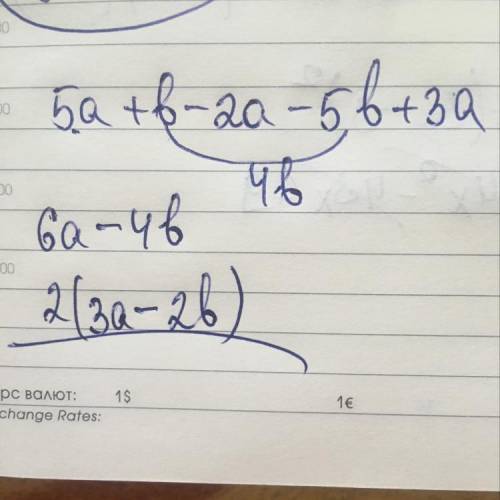 00
5a + b - 2a - 5b + 3a
00
4b
00
6a - 4b
00
2(3a - 2b)
рс валют: 1$ 1€
change Rates: